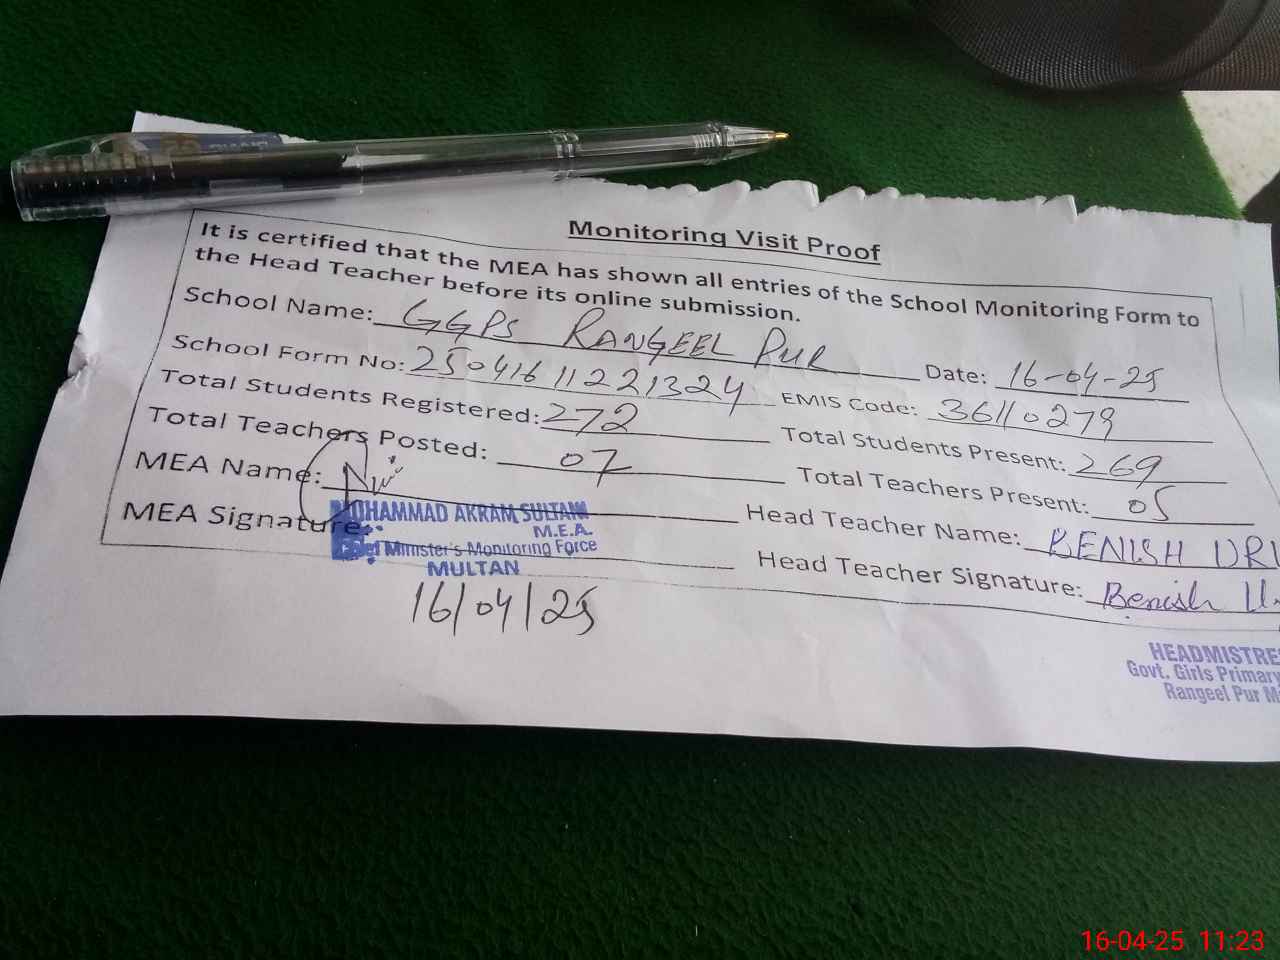 Monitoring Visit Proof
It is certified that the MEA has shown all entries of the School Monitoring Form to
the Head Teacher before its online submission.
School Name: GGPS RANGEEL PUR Date: 16-04-25
School Form No: 25041611221324 EMIS Code: 36110279
Total Students Registered: 272 Total Students Present: 269
Total Teachers Posted: 07 Total Teachers Present: 05
MEA Name: Head Teacher Name: BENISH
MEA Signature: Head Teacher Signature: Benish
MOHAMMAD AKRAM SULTANI
M.E.A.
Chief Minister's Monitoring Force
MULTAN
16/04/25
HEADMISTRE
Govt. Girls Primary
Rangeel Pur M
16-04-25 11:23